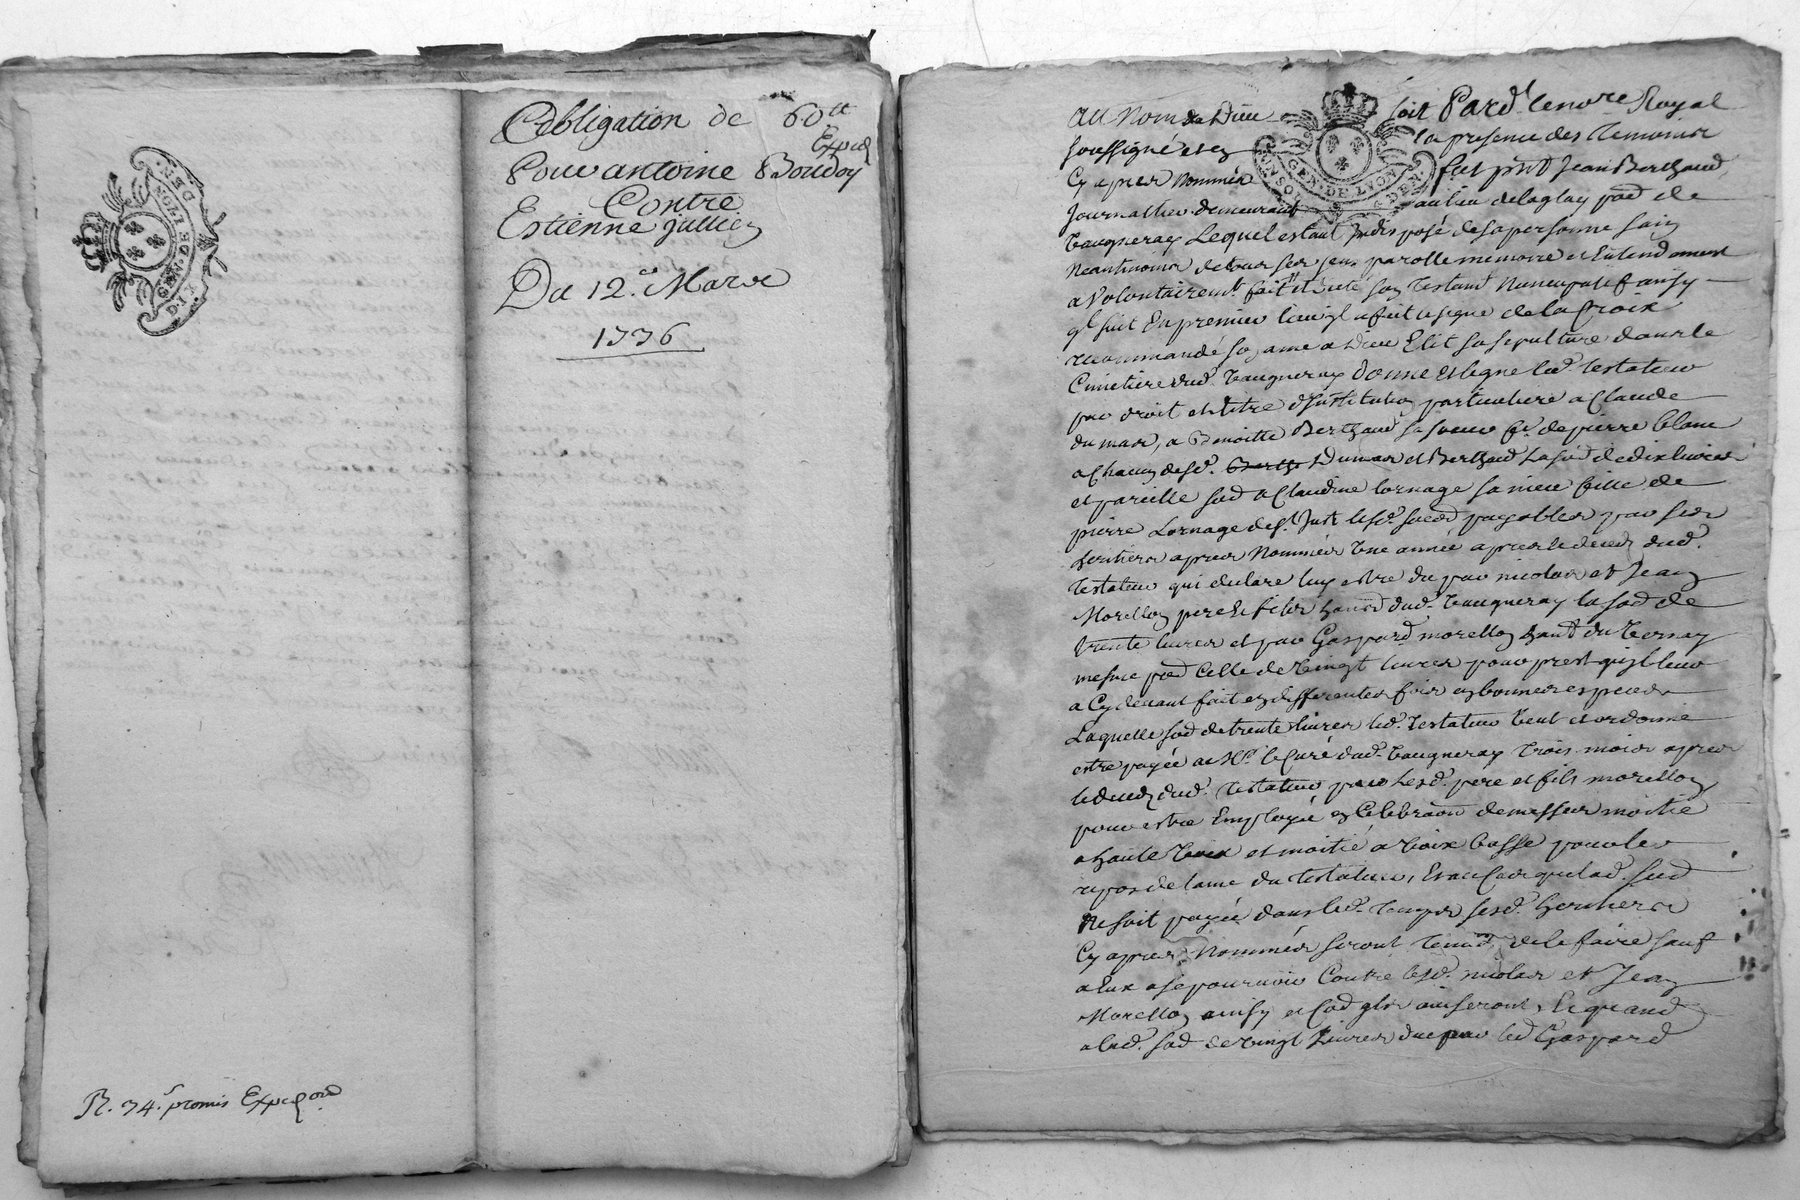 Obligation de 60tt
Exped
Pour antoine Boudoy
Contre
Estienne jullien
Du 12.e Mars
1736
R. 34.s promis Exped
GEN. DE LYON
au Nom de Dieu soit Pard.t le nore Royal
soussigné et en la presence des Temoins
Cy apres Nommés fut pnt Jean Berthaud
Journallier demeurant au lieu de laglay psse de
Vaugneray Lequel estant Indisposé de sa personne sain
Neantmoins de tous ses sens parolle memoire et Entendement
a Volontairemt fait et dicté son Testamt Nuncupatif ainsy
ql suit En premier lieu jl a fait le signe de la Croix
recommandé son ame a Dieu Elit sa sepulture dans le
Cimetiere dud. Vaugneray donne et legue led Testateur
par droit et titre d'Institution particuliere a Claude
dumas, a Benoitte Berthaud sa soeur fe. de pierre blanc
a Chacun desd. Dumas et Berthaud La so de dix livres
et pareille so a Claudine Lornage sa niece fille de
pierre Lornage de St Just lesd. payables par ses
heritiers apres Nommés Une année apres le deces dud.
Testateur qui declare luy estre du par nicolas et Jean
Morellon pere et fils dud. Vaugneray la so de
trente livres et par Gaspard morellon du
mesme psse Celle de Vingt livres pour prest qu'jl leur
a Cy devant fait en differentes fois en bonnes especes
Laquelle so de trente livres led. Testateur Veut et ordonne
estre payée au Sr. le Curé dud. Vaugneray Trois mois apres
le deces dud. Testateur par Lesd. pere et fils morellon
pour estre Employée en Celebraon de messes moitié
a haute Voix et moitié a Voix basse pour le
repos de lame du Testateur, Et au Cas que lad. so
Ne soit payée dans led. Temps sesd. heritiers
Cy apres Nommés seront Tenus de le faire sauf
a Eux a se pourvoir Contre lesd. nicolas et Jean
Morellon ainsy et Co qls aviseront, Et quand
a lad. so de Vingt Livres due par led Gaspard